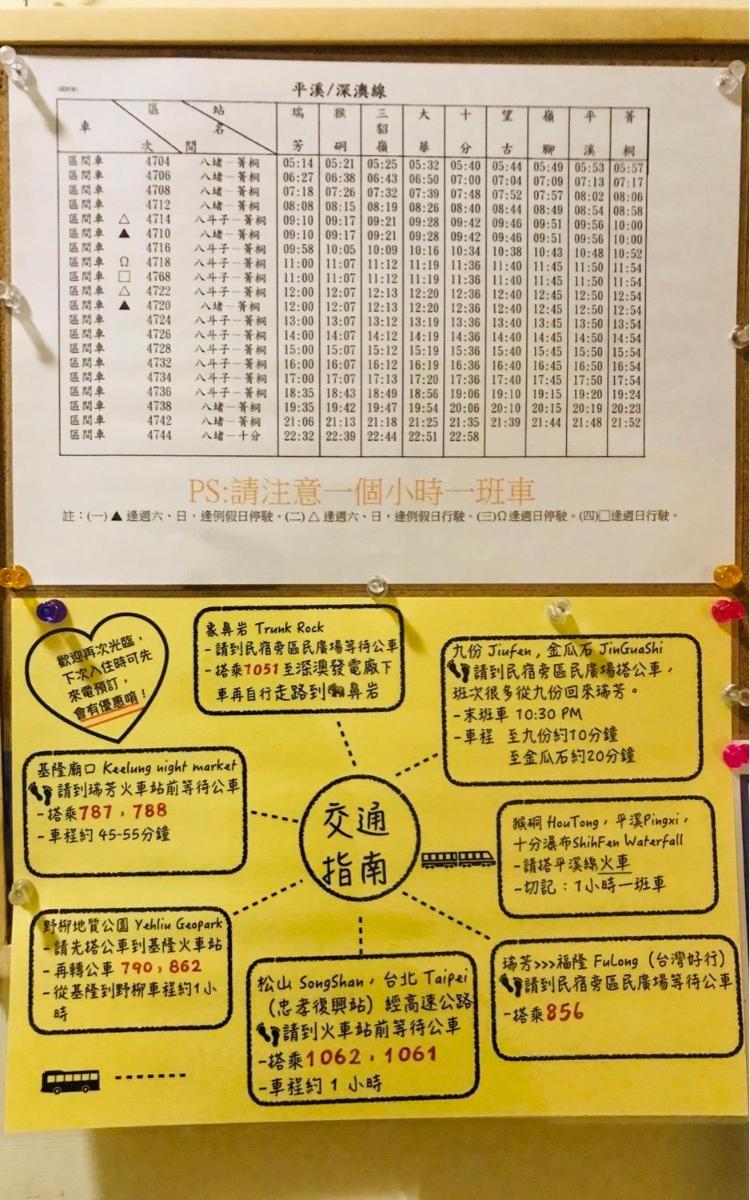 平溪/深澳線
車 次 區 間 站 名 瑞芳 猴硐 三貂嶺 大華 十分 望古 嶺腳 平溪 菁桐
區間車 4704 八堵－菁桐 05:14 05:21 05:25 05:32 05:40 05:44 05:49 05:53 05:57
區間車 4706 八堵－菁桐 06:27 06:38 06:43 06:50 07:00 07:04 07:09 07:13 07:17
區間車 4708 八堵－菁桐 07:18 07:26 07:32 07:39 07:48 07:52 07:57 08:02 08:06
區間車 4712 八堵－菁桐 08:08 08:15 08:19 08:26 08:40 08:44 08:49 08:54 08:58
區間車 △ 4714 八斗子－菁桐 09:10 09:17 09:21 09:28 09:42 09:46 09:51 09:56 10:00
區間車 ▲ 4710 八堵－菁桐 09:10 09:17 09:21 09:28 09:42 09:46 09:51 09:56 10:00
區間車 4716 八斗子－菁桐 09:58 10:05 10:09 10:16 10:34 10:38 10:43 10:48 10:52
區間車 Ω 4718 八斗子－菁桐 11:00 11:07 11:12 11:19 11:36 11:40 11:45 11:50 11:54
區間車 □ 4768 八斗子－菁桐 11:00 11:07 11:12 11:19 11:36 11:40 11:45 11:50 11:54
區間車 △ 4722 八斗子－菁桐 12:00 12:07 12:13 12:20 12:36 12:40 12:45 12:50 12:54
區間車 ▲ 4720 八堵－菁桐 12:00 12:07 12:13 12:20 12:36 12:40 12:45 12:50 12:54
區間車 4724 八斗子－菁桐 13:00 13:07 13:12 13:19 13:36 13:40 13:45 13:50 13:54
區間車 4726 八斗子－菁桐 14:00 14:07 14:12 14:19 14:36 14:40 14:45 14:50 14:54
區間車 4728 八斗子－菁桐 15:00 15:07 15:12 15:19 15:36 15:40 15:45 15:50 15:54
區間車 4732 八斗子－菁桐 16:00 16:07 16:12 16:19 16:36 16:40 16:45 16:50 16:54
區間車 4734 八斗子－菁桐 17:00 17:07 17:13 17:20 17:36 17:40 17:45 17:50 17:54
區間車 4736 八斗子－菁桐 18:35 18:43 18:49 18:56 19:06 19:10 19:15 19:20 19:24
區間車 4738 八堵－菁桐 19:35 19:42 19:47 19:54 20:06 20:10 20:15 20:19 20:23
區間車 4742 八堵－菁桐 21:06 21:13 21:18 21:25 21:35 21:39 21:44 21:48 21:52
區間車 4744 八堵－十分 22:32 22:39 22:44 22:51 22:58
PS:請注意一個小時一班車
註：(一) ▲ 逢週六、日，逢例假日停駛。(二) △ 逢週六、日，逢例假日行駛。(三)Ω逢週日停駛。(四)□逢週日行駛。
歡迎再次光臨，
下次入住時可先
來電預訂，
會有優惠唷！
象鼻岩 Trunk Rock
-請到民宿旁區民廣場等待公車
-搭乘1051至深澳發電廠下
車再自行走路到鼻岩
九份 Jiufen , 金瓜石 JinGuaShi
請到民宿旁區民廣場搭公車，
班次很多從九份回來瑞芳。
-末班車 10:30 PM
-車程 至九份約10分鐘
至金瓜石約20分鐘
基隆廟口 Keelung night market
請到瑞芳火車站前等待公車
-搭乘787，788
-車程約 45-55分鐘
交通
指南
猴硐 HouTong，平溪Pingxi，
十分瀑布ShihFen Waterfall
-請搭平溪線火車
-切記：1小時一班車
野柳地質公園 Yehliu Geopark
-請先搭公車到基隆火車站
-再轉公車 790，862
-從基隆到野柳車程約1小
時
松山 SongShan，台北 Taipei
（忠孝復興站）經高速公路
請到火車站前等待公車
-搭乘1062，1061
-車程約 1 小時
瑞芳>>>福隆 FuLong（台灣好行）
請到民宿旁區民廣場等待公車
-搭乘856